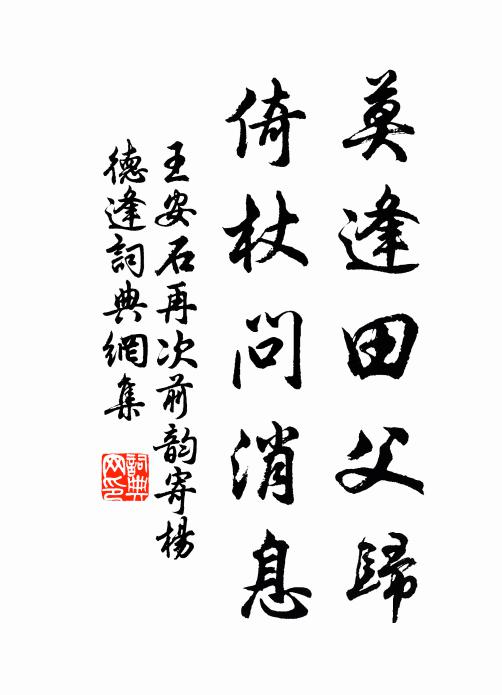 莫逢田父歸
倚杖問消息
王安石再次前韵寄楊
德逢詞典網集
詞典
网印